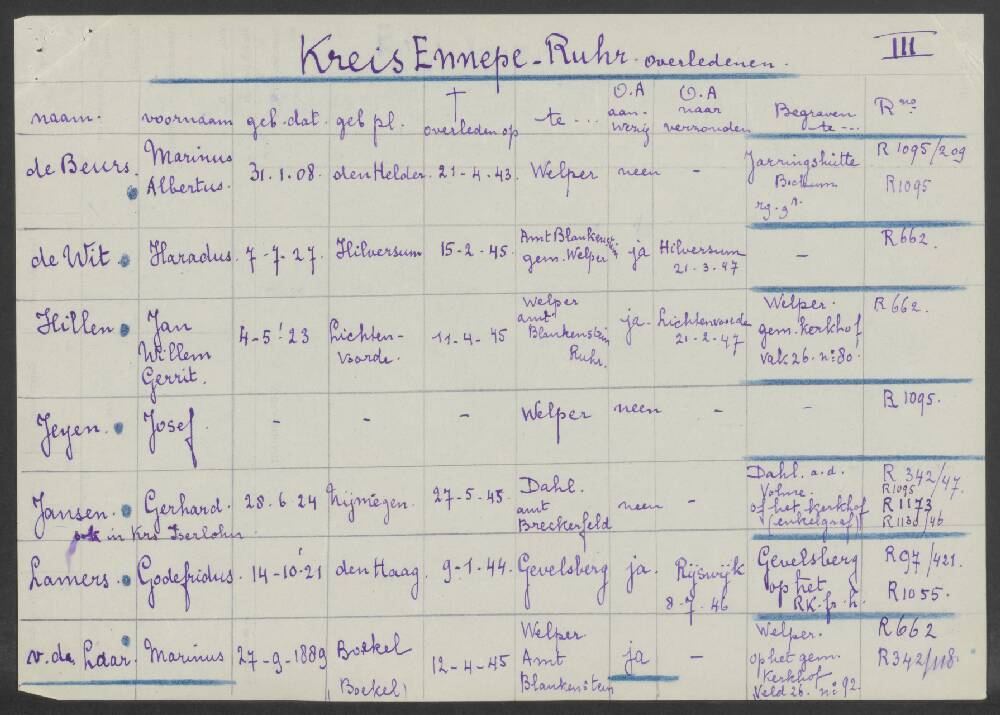 Kreis Ennepe-Ruhr. overledenen. III
naam. voornaam geb. dat. geb pl. † overleden op te ... O.A aanwezig O.A naar verzonden Begraven te --- R no.
de Beurs. Marinus Albertus. 31.1.08. den Helder. 21-4-43. Welper neen - Bochum R 1095/209 R1095
de Wit. Haradus. 7-7-27. Hilversum 15-2-45. Amt Blankenstein gem. Welper ja Hilversum 21-3-47 - R662.
Hillen. Jan Willem Gerrit. 4-5-'23 Lichtenvoorde. 11-4-45 Welper amt Blankenstein Ruhr. ja. Lichtenvoorde 21-2-47 Welper. gem. kerkhof vak 26. nº 80. R 662.
Jeyen. Josef. - - - Welper neen - - R 1095.
Jansen. Gerhard. 28.6.24 Nijmegen. 27-5-45. Dahl. amt Breckerfeld neen - Dahl. a.d. Volme. op het kerkhof (enkelgraf) R 342/47. R1095 R1173 R1130/46
ook in Krs Iserlohn
Lamers. Godefridus. 14-10-'21 den Haag. 9-1-44. Gevelsberg ja. Rijswijk 8-7-46 Gevelsberg op het RK. fr. h. R97/421. R1055.
v.de Laar. Marinus 27-9-1889 Boekel (Boekel) 12-4-45 Welper. Amt Blankenstein ja - Welper. op het gem. Kerkhof Veld 26. nº 92. R662 R342/118.